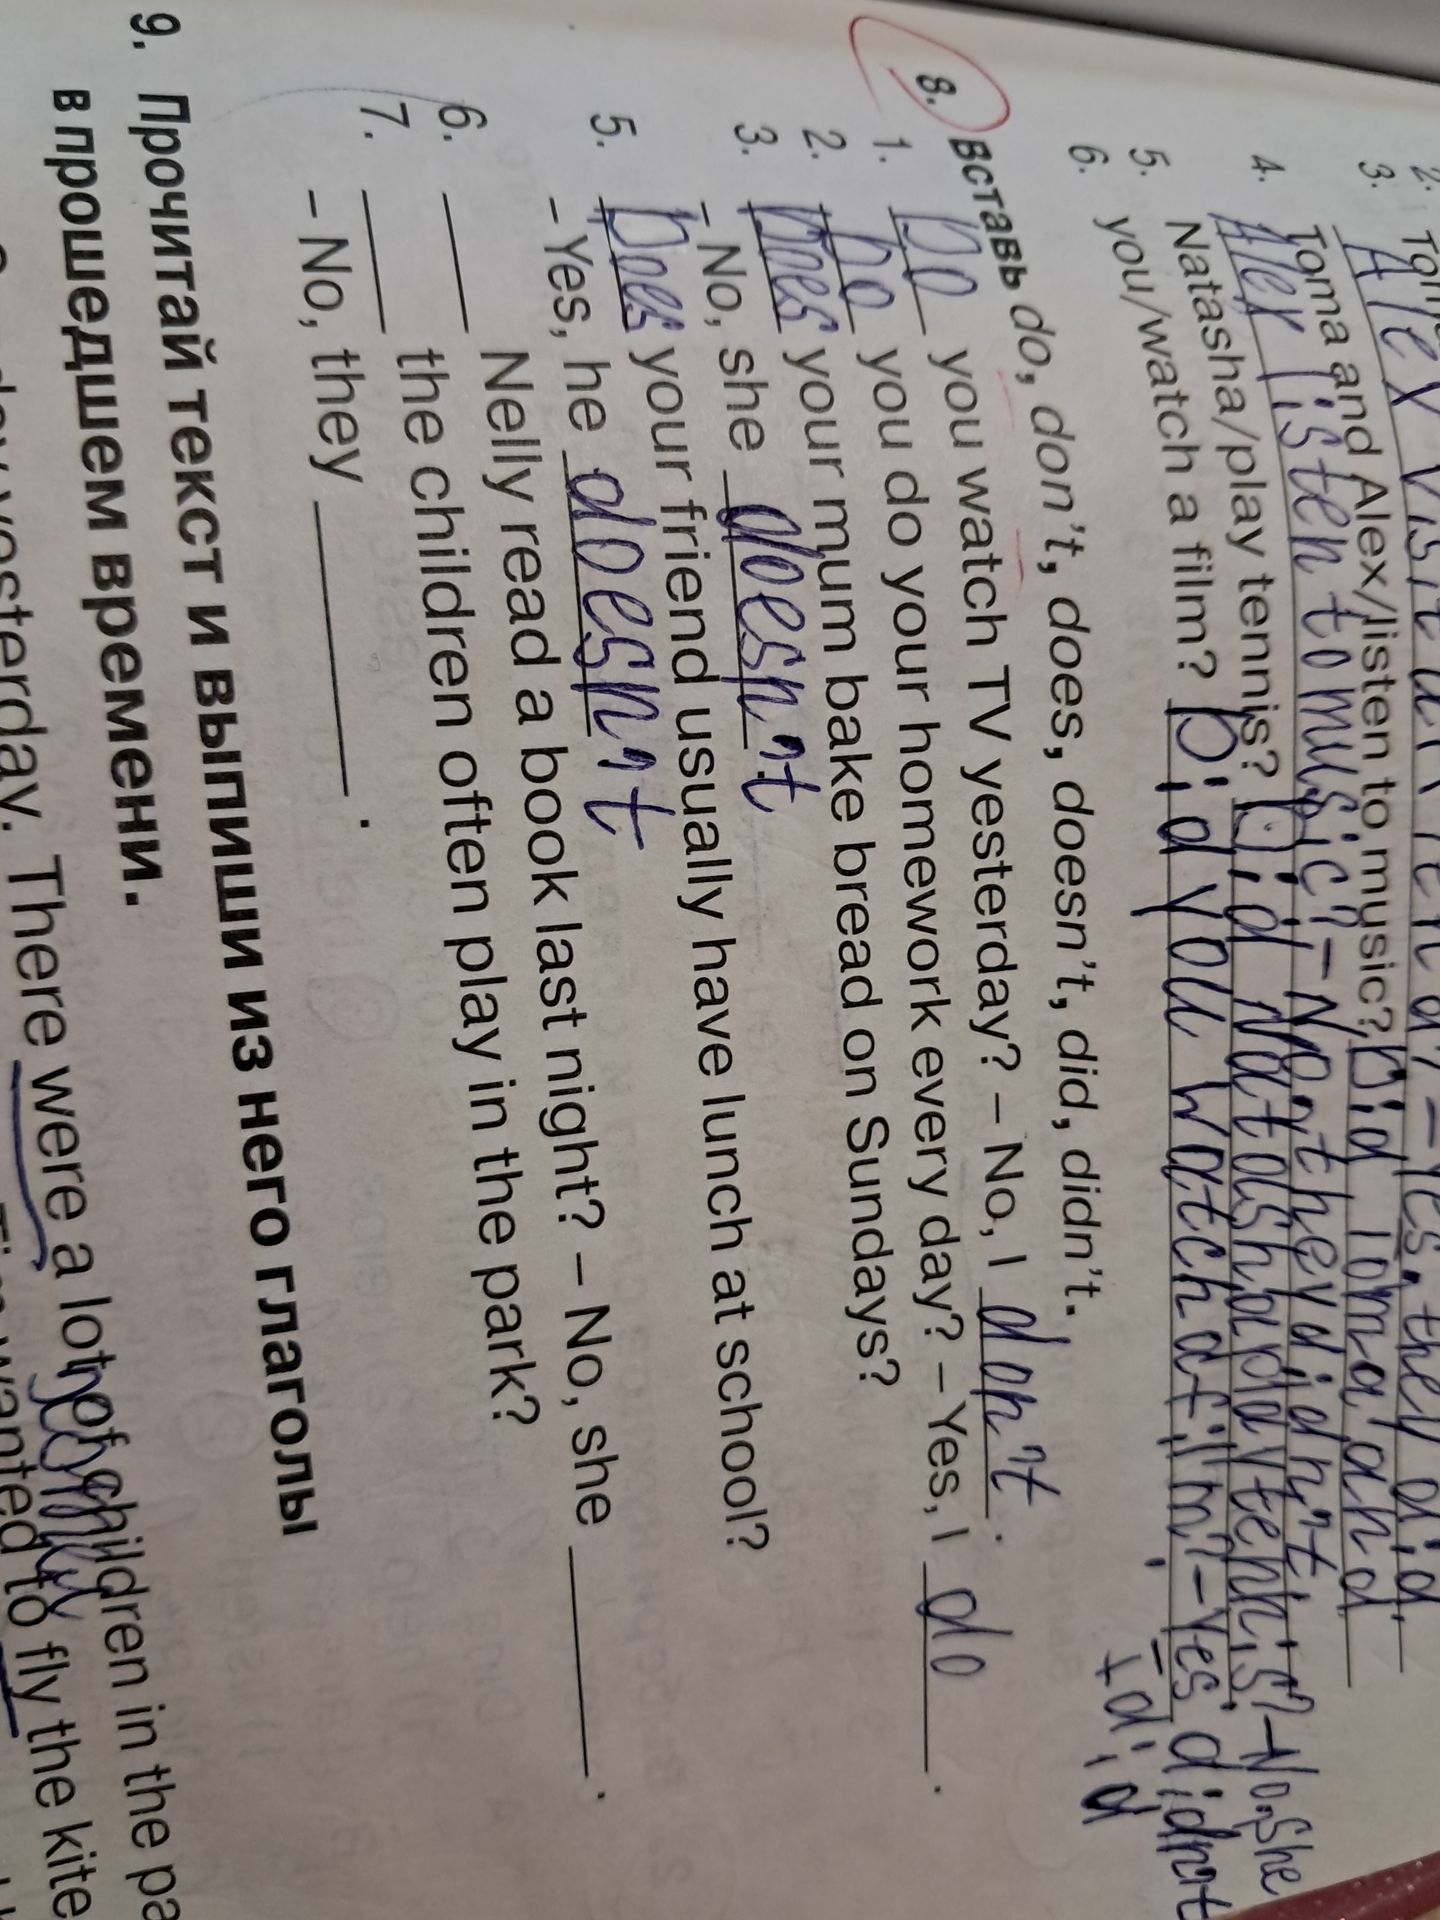 3. Toma and Alex/listen to music? Did Toma and
Alex listen to music? - No, they didn't
4. Natasha/play tennis? Did Natasha play tennis? - No, she
didn't
5. you/watch a film? Did you watch a film? - Yes
6.
I did
8. Вставь do, don't, does, doesn't, did, didn't.
1. Do you watch TV yesterday? – No, I don't.
2. Do you do your homework every day? – Yes, I do.
3. Does your mum bake bread on Sundays?
– No, she doesn't
5. Does your friend usually have lunch at school?
– Yes, he doesn't
6. Nelly read a book last night? – No, she .
7. the children often play in the park?
– No, they .
9. Прочитай текст и выпиши из него глаголы
в прошедшем времени.
yesterday. There were a lot of children in the pa
wanted to fly the kite